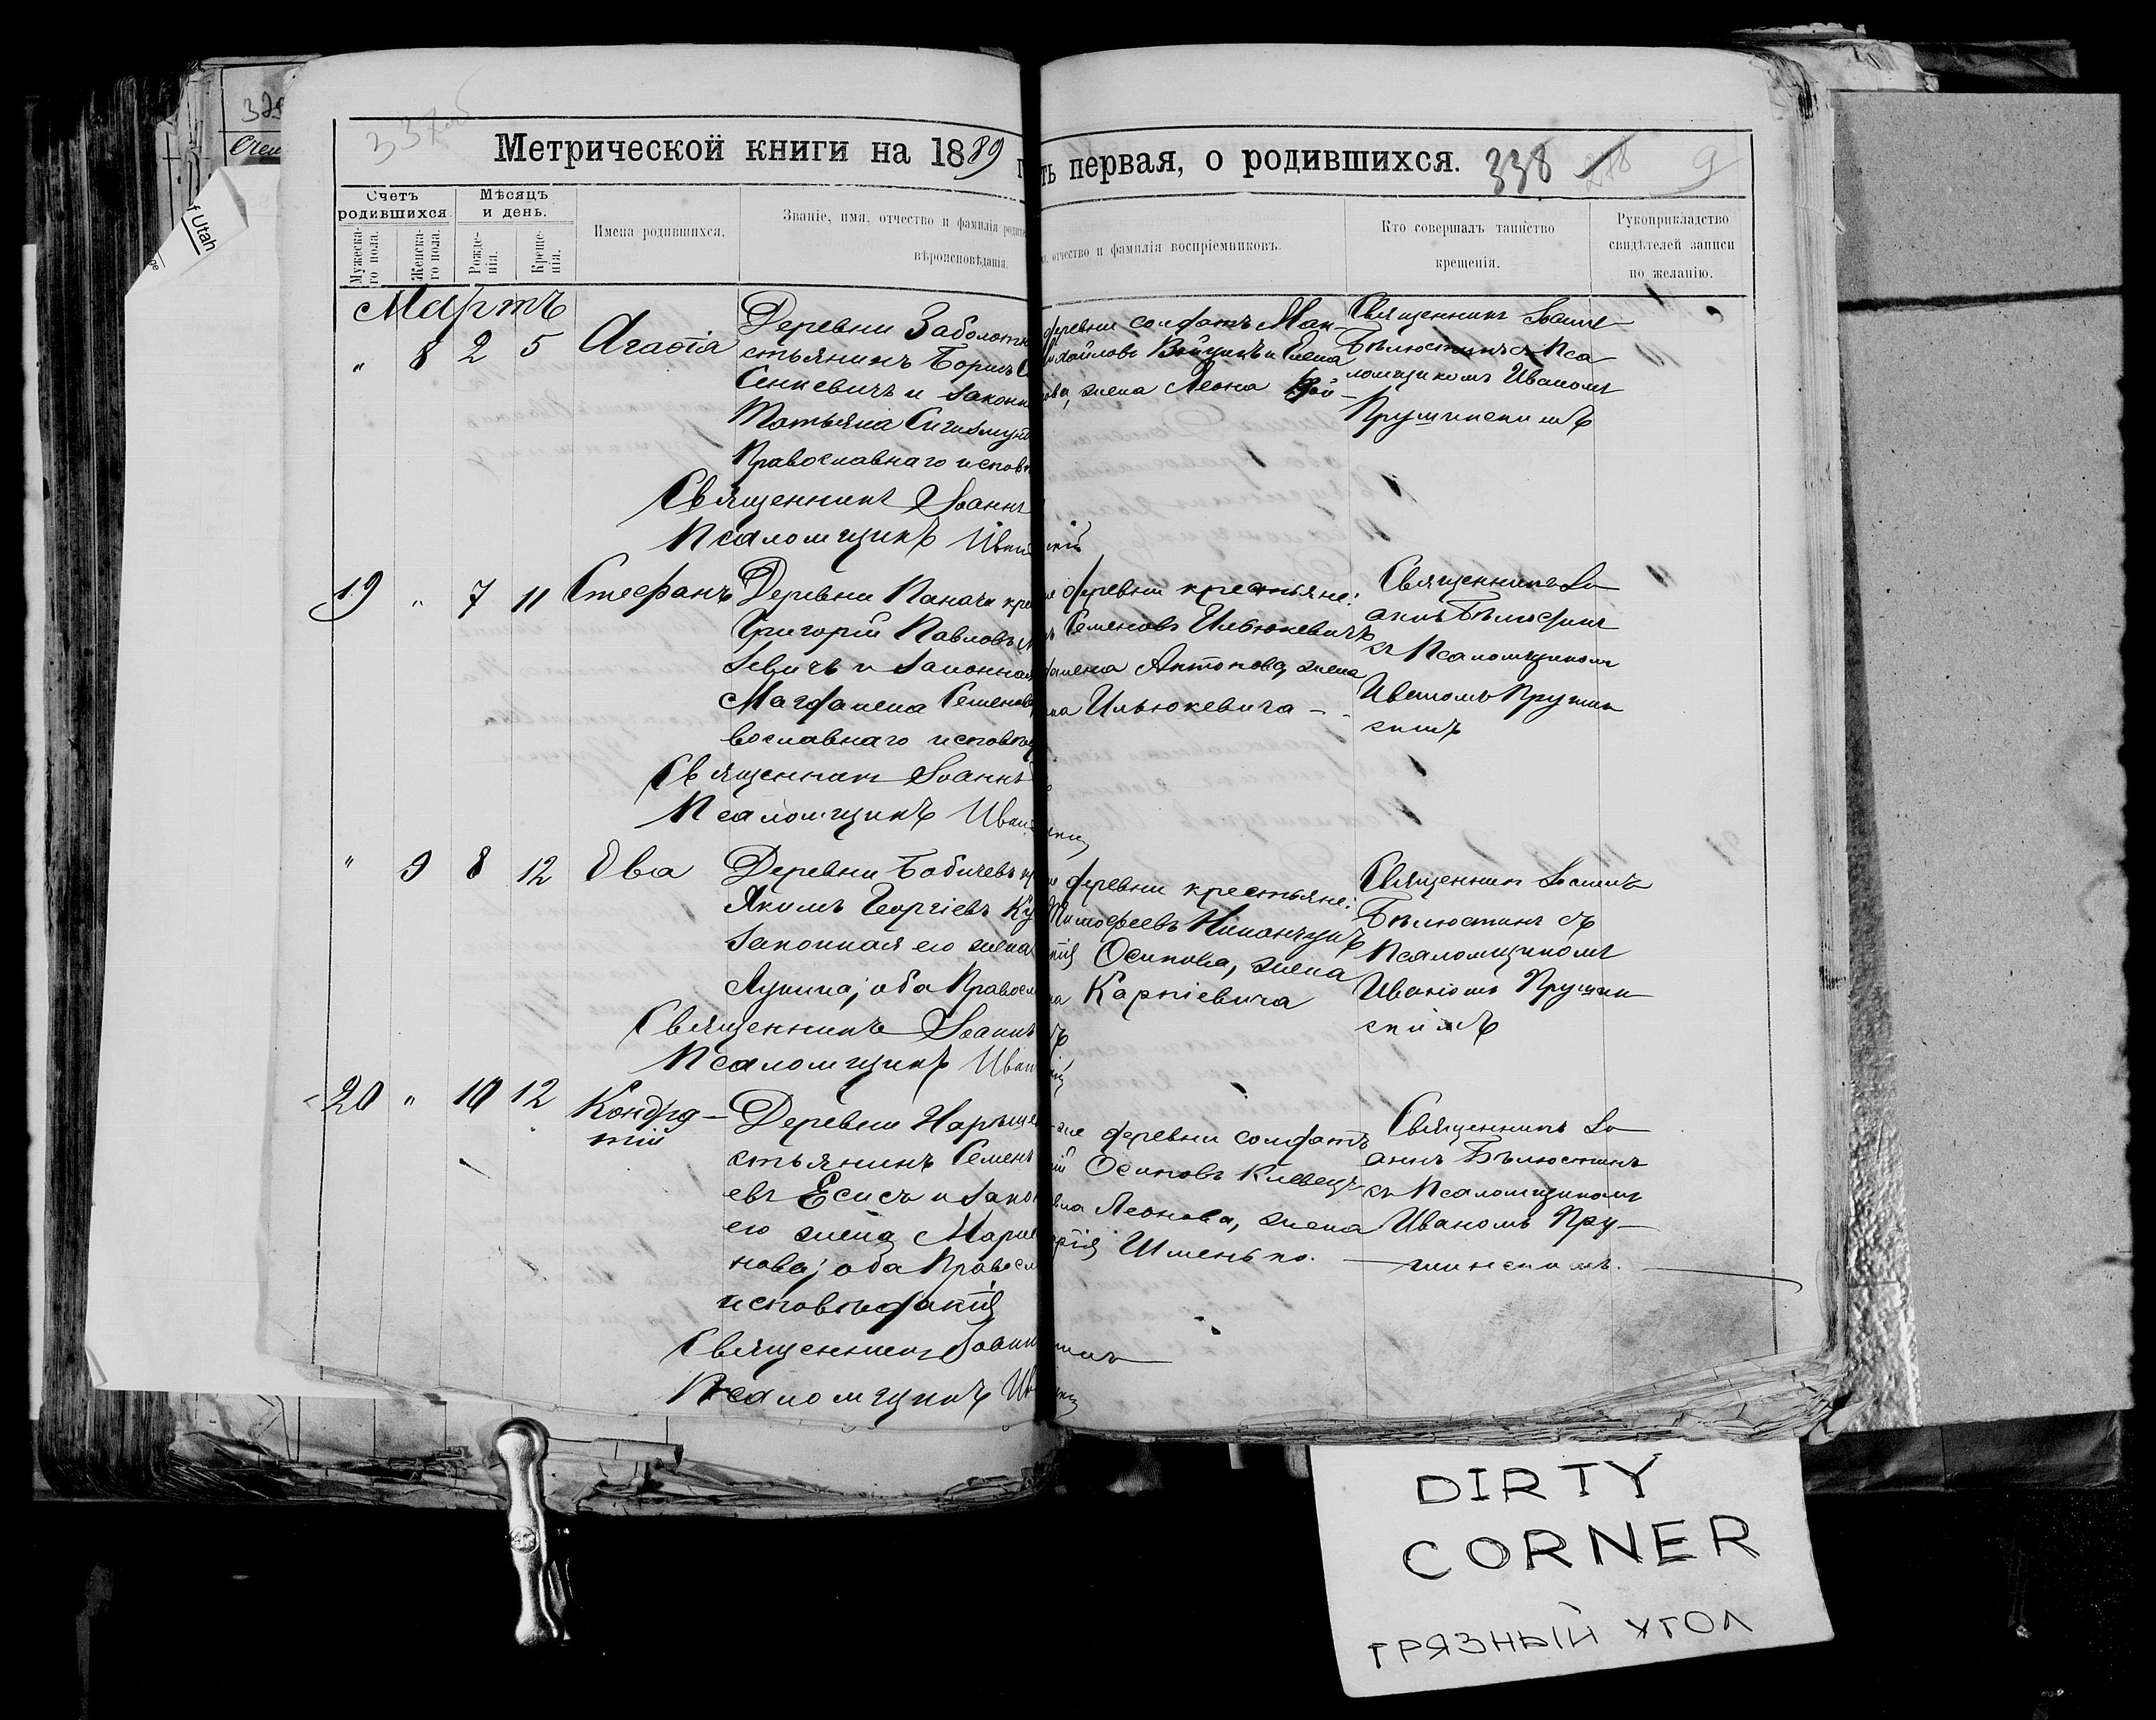 Метрической книги на 1889
ть первая, о родившихся. 338
Счетъ родившихся.
Мѣсяцъ и день.
Мужеска-го пола.
Женска-го пола.
Рожде-нія.
Креще-нія.
Имена родившихся.
Званіе, имя, отчество и фамилія
вѣроисповѣданія.
отчество и фамилія воспріемниковъ.
Кто совершалъ таинство
крещенія.
Рукоприкладство
свидѣтелей записи
по желанію.
Мартъ
" 8 2 5 Агафія
Деревни Заболот
стьянинъ Борисъ
Сенкевичъ и закон
Татьяна Сигизмун
Православнаго испов
Священникъ Іоаннъ
Псаломщикъ Иван
деревни солдатъ Мак-
Войцикъ и Елена
жена Леона
Священникъ Іоаннъ
Бѣлюстинъ съ Пса
ломщикомъ Иваномъ
Прушинскимъ
19 " 7 11 Стефанъ
Деревни Панача кре
Григорій Павловъ
зевичъ и законная
Магдалена Семенов
вославнаго исповѣд
Священникъ Іоаннъ
Псаломщикъ Иван
деревни крестьяне:
Семеновъ Ильюкевичъ
Антонова, жена
Ильюкевича
Священникъ Іо
аннъ Бѣлюстинъ
съ Псаломщикомъ
Иваномъ Прушин
скимъ
" 9 8 12 Ева
Деревни Бобичевъ
Якимъ Георгіевъ Ку
законная его жена
Лукина; оба Правосл
Священникъ Іоаннъ
Псаломщикъ Иван
деревни крестьяне:
Тимофеевъ
Осипова, жена
Карпіевича
Священникъ Іоаннъ
Бѣлюстинъ съ
Псаломщикомъ
Иваномъ Прушин
скимъ
20 " 10 12 Кондра-
тій
Деревни
стьянинъ Семенъ
евъ Есисъ и закон
его жена Марія
нова; оба Правосл
исповѣданія
Священникъ Іоаннъ
Псаломщикъ Ив
деревни солдатъ
Осиповъ Клевецъ
Леонова, жена
Шменько.
Священникъ Іо
аннъ Бѣлюстинъ
съ Псаломщикомъ
Иваномъ Пру-
шинскимъ.
f Utah
DIRTY
CORNER
ГРЯЗНЫЙ УГОЛ